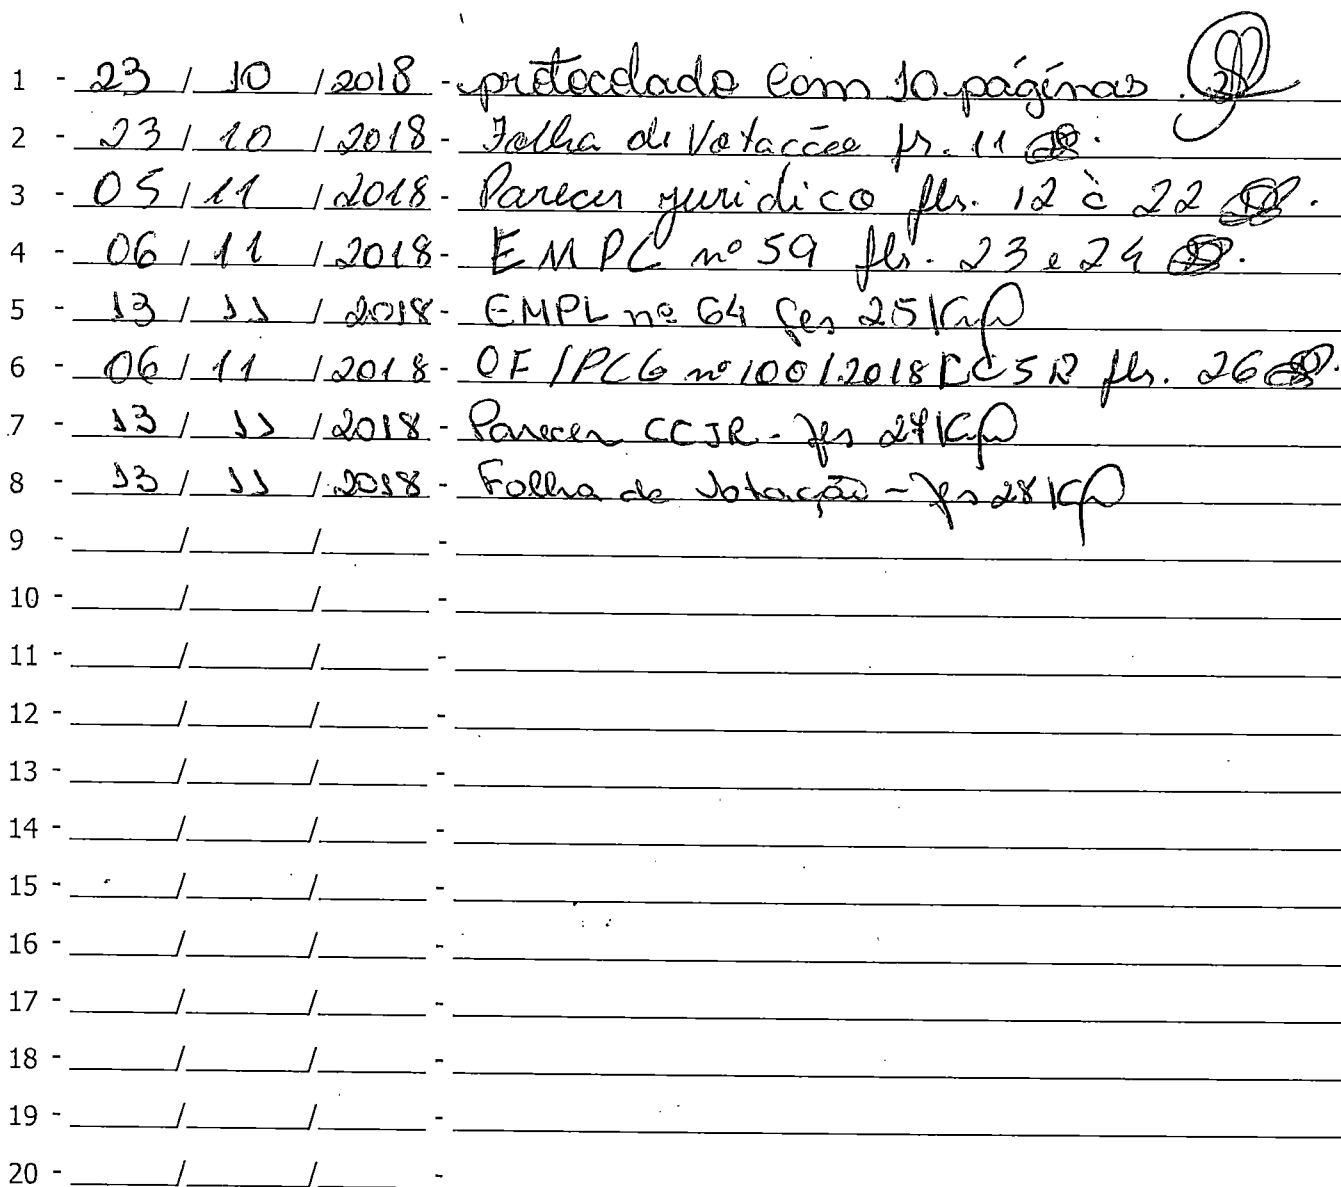 1 - 23 / 10 / 2018 - protocolado com 10 páginas.
2 - 23 / 10 / 2018 - Folha de Votação fs. 11
3 - 05 / 11 / 2018 - Parecer jurídico fls. 12 à 22
4 - 06 / 11 / 2018 - EMPL nº 59 fls. 23 e 24
5 - 13 / 11 / 2018 - EMPL nº 64 fls 25
6 - 06 / 11 / 2018 - OF/PCG nº 100/2018 fls. 26
7 - 13 / 11 / 2018 - Parecer CCJR - fls 27
8 - 13 / 11 / 2018 - Folha de Votação - fls 28
9 - ____/____/____ -
10 - ____/____/____ -
11 - ____/____/____ -
12 - ____/____/____ -
13 - ____/____/____ -
14 - ____/____/____ -
15 - ____/____/____ -
16 - ____/____/____ -
17 - ____/____/____ -
18 - ____/____/____ -
19 - ____/____/____ -
20 - ____/____/____ -